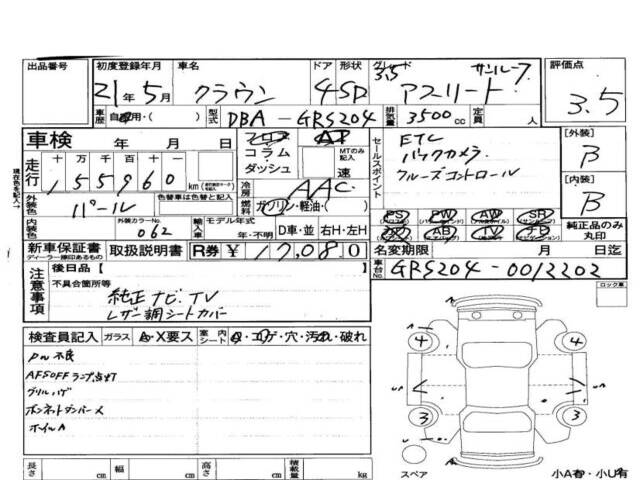 出品番号 初度登録年月 車名 ドア 形状 グレード 評価点
21年 5月 クラウン 4 SD 3.5 アスリート サンルーフ 3.5
車歴 自家用・( ) 型式 DBA-GRS204 排気量 3500cc 定員 人
車検 年 月 日
フロア AT
コラム・ダッシュ
MTのみ記入 速
セールスポイント
ETC
バックカメラ
クルーズコントロール
[外装] B
[内装] B
現在色を記入→
走行 十 万 千 百 十 一
155960 km
冷房 AAC
燃料 ガソリン・軽油・( )
外装色 パール
色替車は色替と記入
外装カラーNo. 062
輸入車 モデル年式 年・不明 D車・並 右H・左H
PS PW AW SR
AB TV
純正品のみ丸印
新車保証書 ディーラー捺印あるもの 取扱説明書 R券 ¥17,080
名変期限 月 日迄
車台No. GRS204-0012202
注意事項
後日品【 】
不具合箇所等
純正ナビ.TV
レザー調シートカバー
ロック車
検査員記入 ガラス A・X要ス 室内 シート・コゲ・穴・汚れ・破れ
PM不良
AFSOFFランプ点灯
グリルハゲ
ボンネットダンパー×
ホイルA
4 4
3 3
スペア 小A有・小U有
長さ cm 幅 cm 高さ cm 積載量 kg